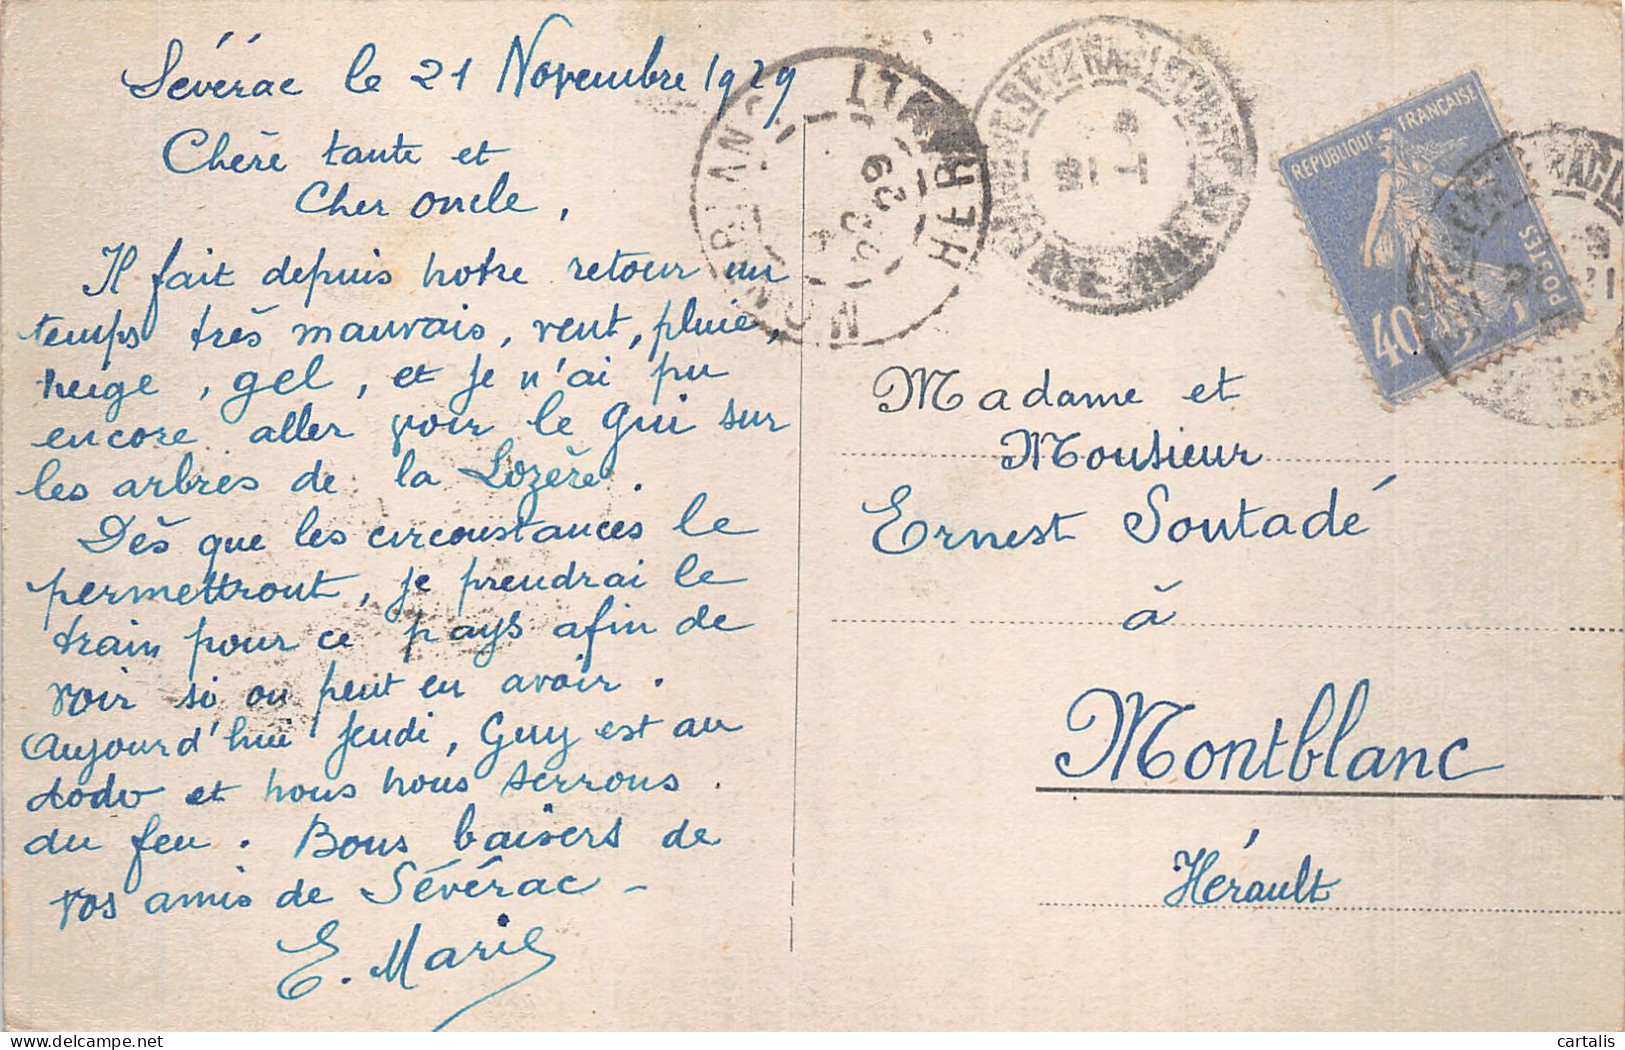 Sévérac le 21 Novembre 1929
Chère tante et
Cher oncle,
Il fait depuis notre retour un
temps très mauvais, vent, pluie,
neige, gel, et je n'ai pu
encore aller voir le gui sur
les arbres de la Lozère.
Dès que les circonstances le
permettront, je prendrai le
train pour ce pays afin de
voir si on peut en avoir.
Aujourd'hui jeudi, Guy est au
dodo et nous nous serrons
du feu. Bons baisers de
vos amis de Sévérac -
E. Marie
MONTBLANC
HERAULT
29
REPUBLIQUE FRANÇAISE
POSTES
40c
Madame et
Monsieur
Ernest Soutadé
à
Montblanc
Hérault
cartalis
delcampe.net